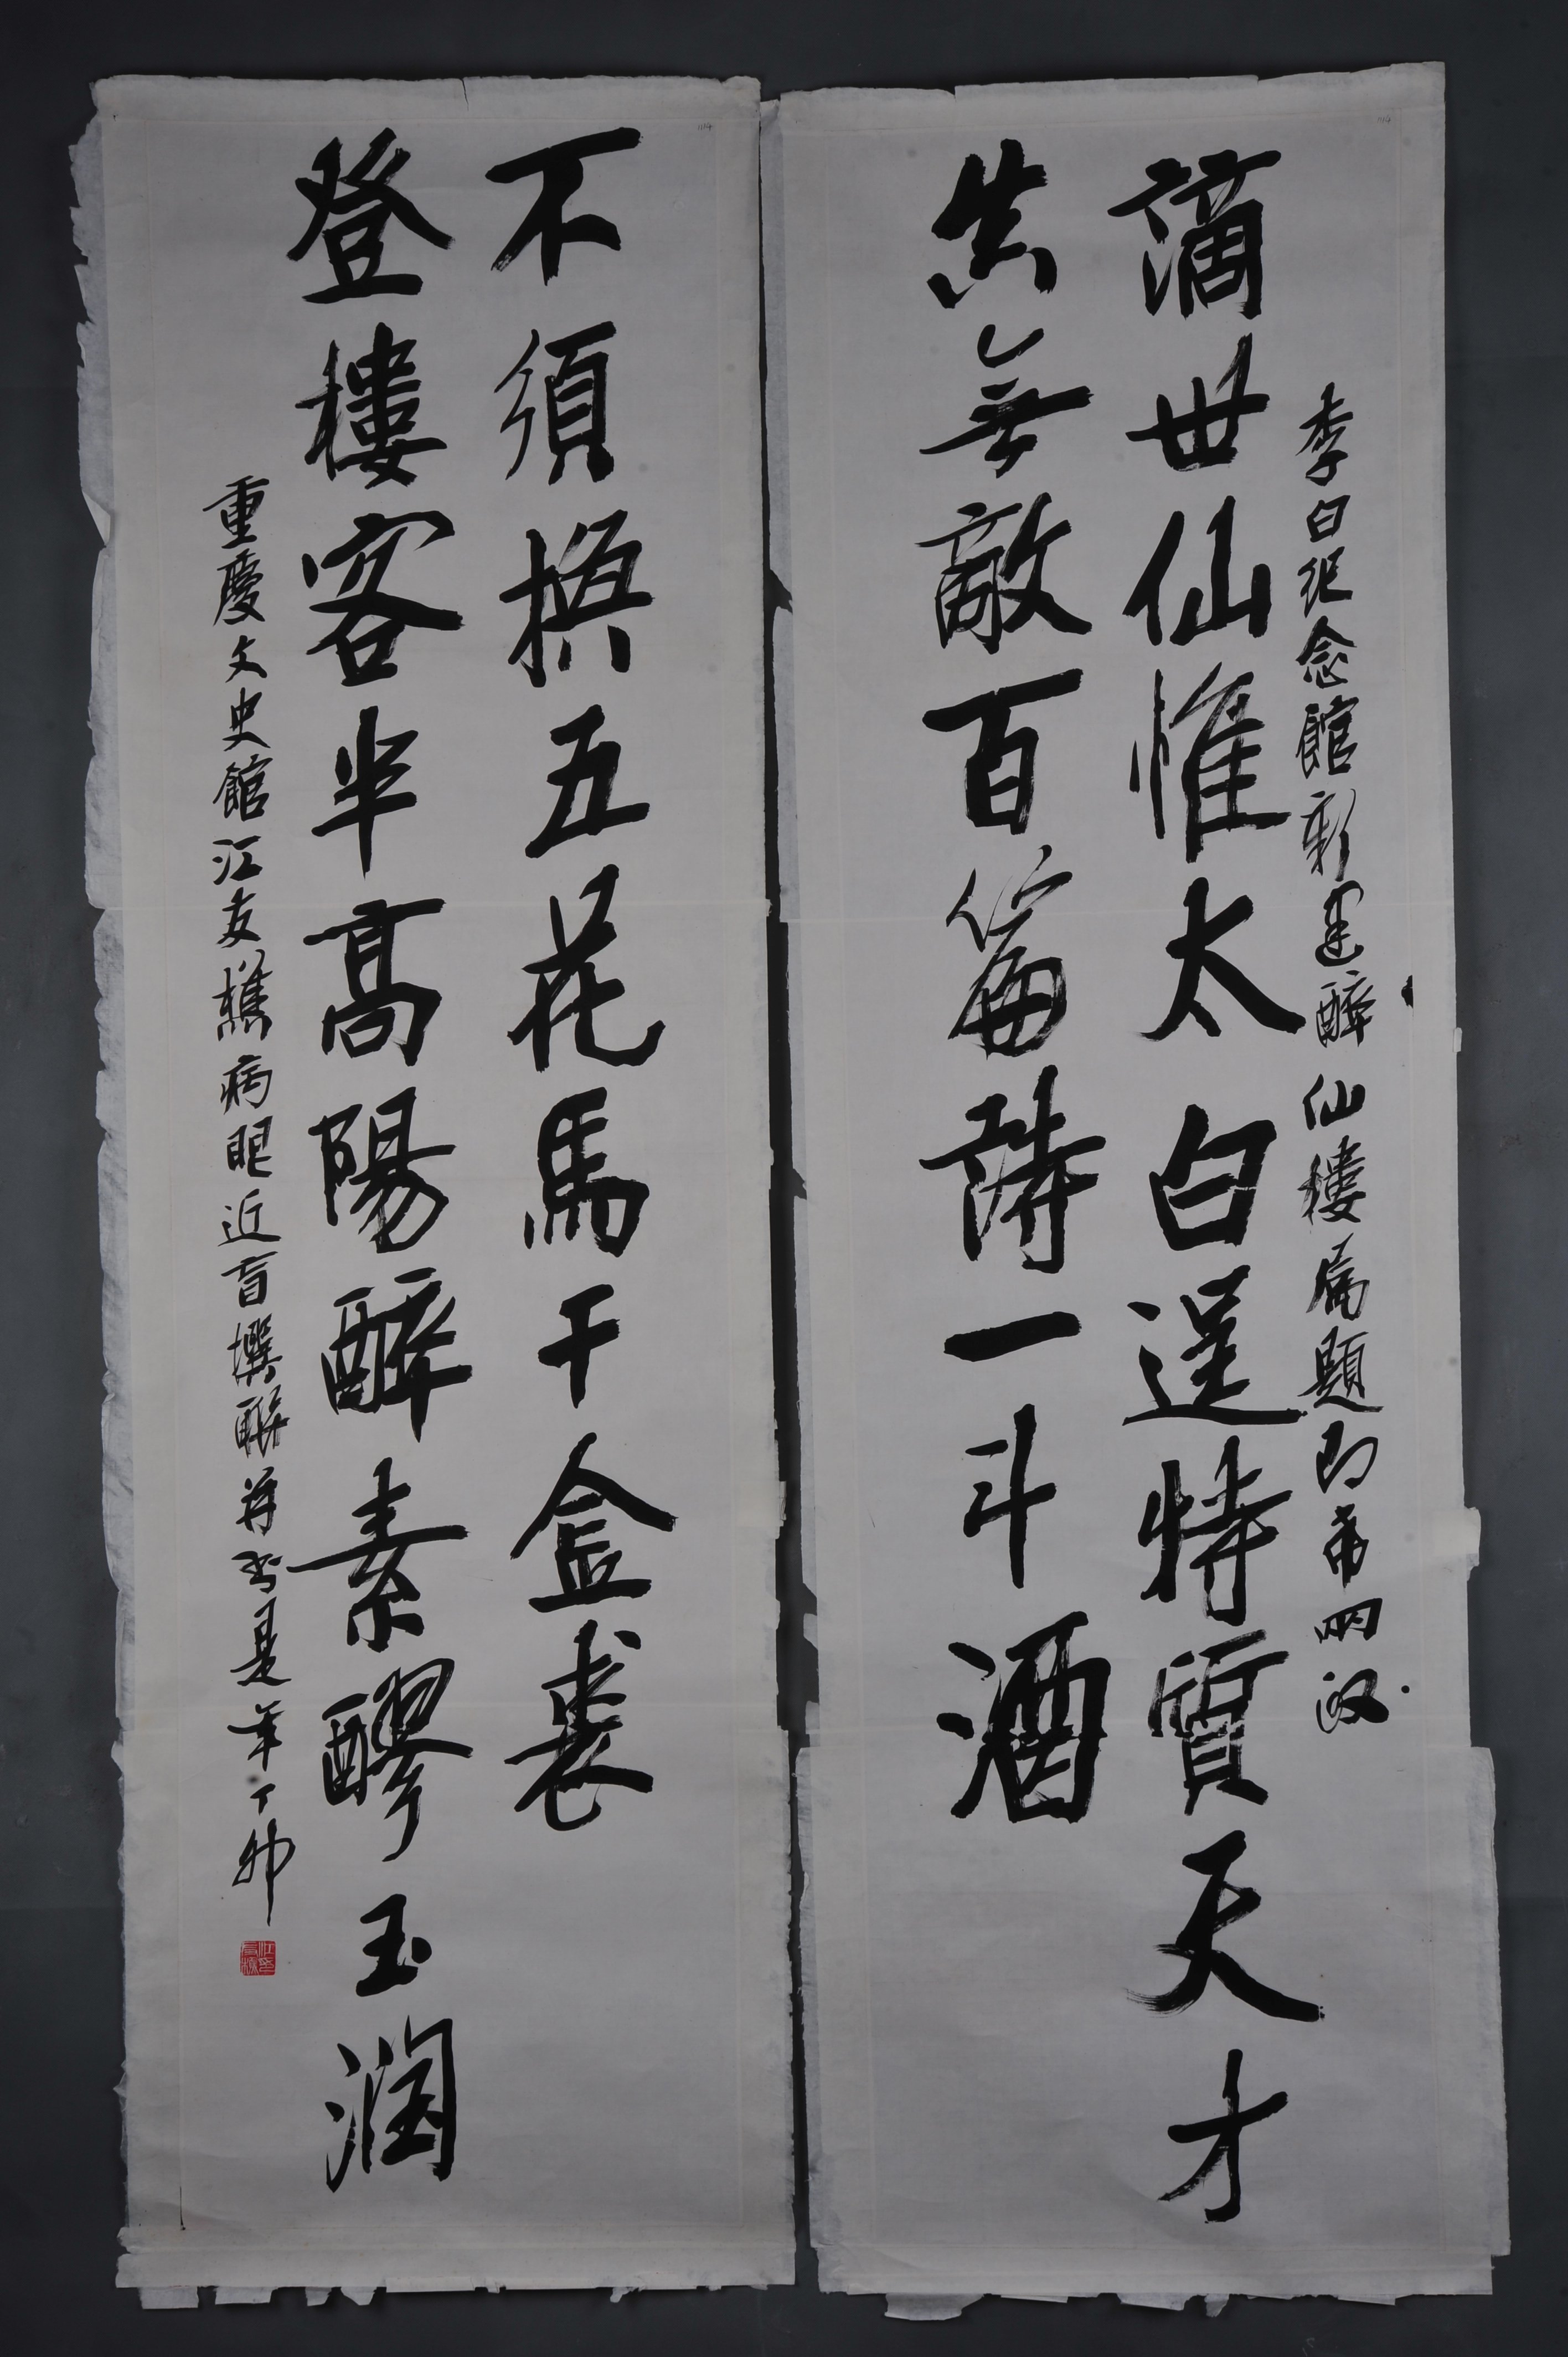 李白紀念館新建醉仙樓属題即希政
謫世仙惟太白逞特質天才
共無敵百篇詩一斗酒
登樓客半高陽醉素醪玉潤
不須换五花馬千金裘
重慶文史館江友樵病眼近盲撰聯并書是年丁卯